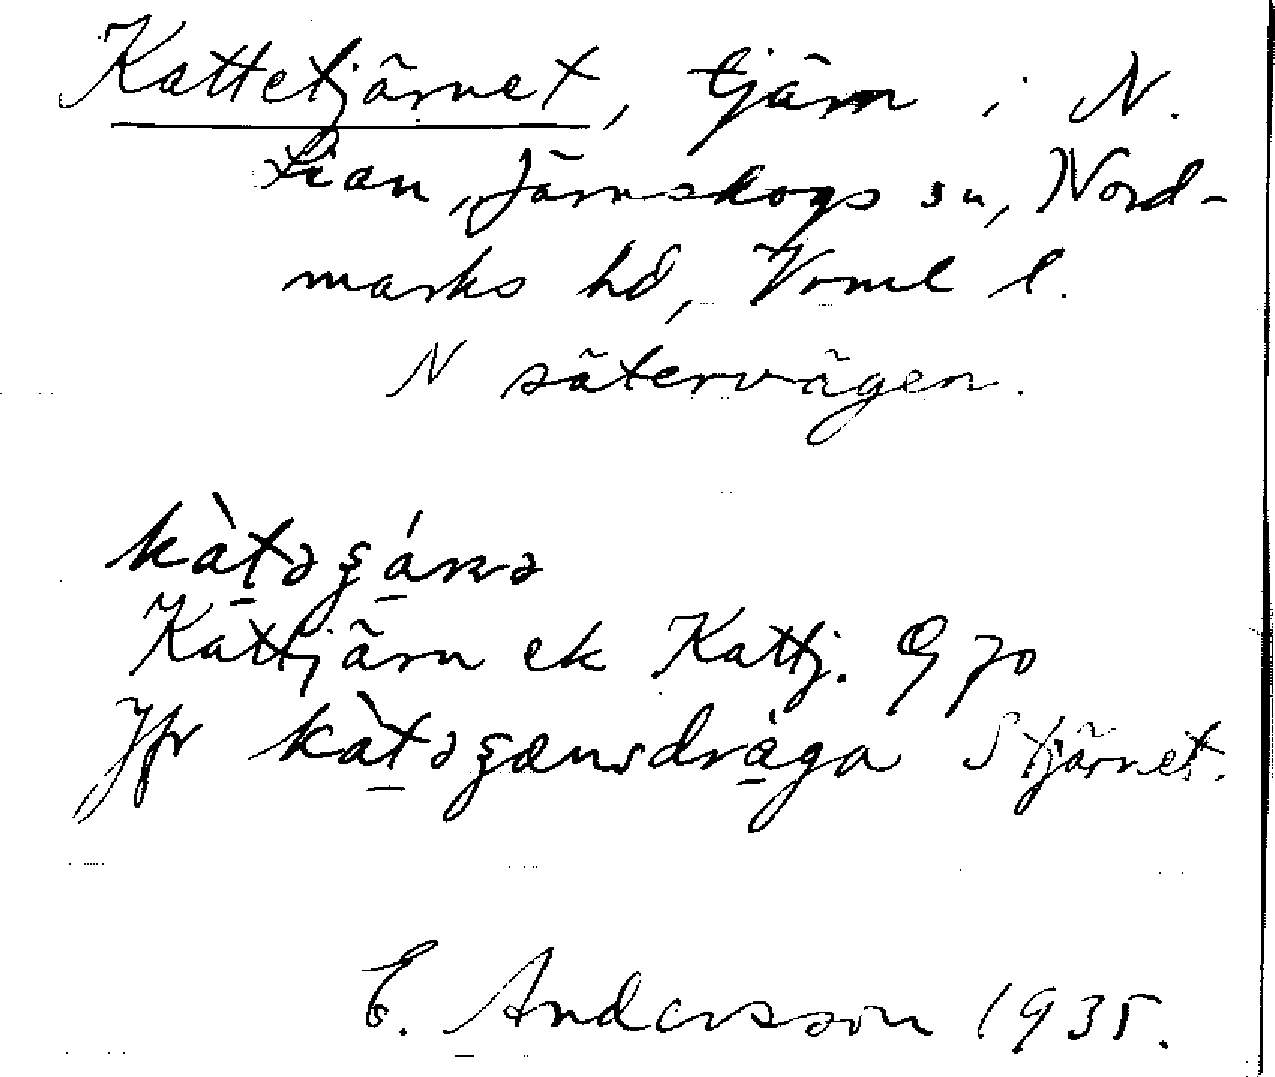 Kattetjärnet, tjärn i N.
Lian, Järnskogs sn, Nord-
marks hd, Vrml l.
N sätervägen.
kàtəʒáɳə
Kattjärn ek Kattj. G 70
Jfr kàtəʒænsdràga S tjärnet.
E. Andersson 1935.